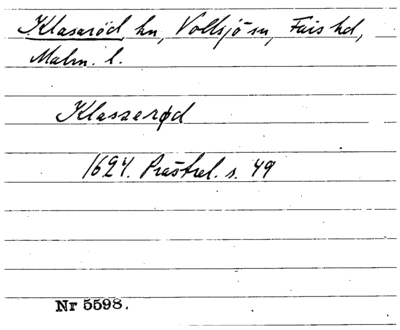 Klasaröd hn, Vollsjö sn, Färs hd,
Malm. l.
Klaszerød
1624. Prästrel. s. 49
Nr 5598.